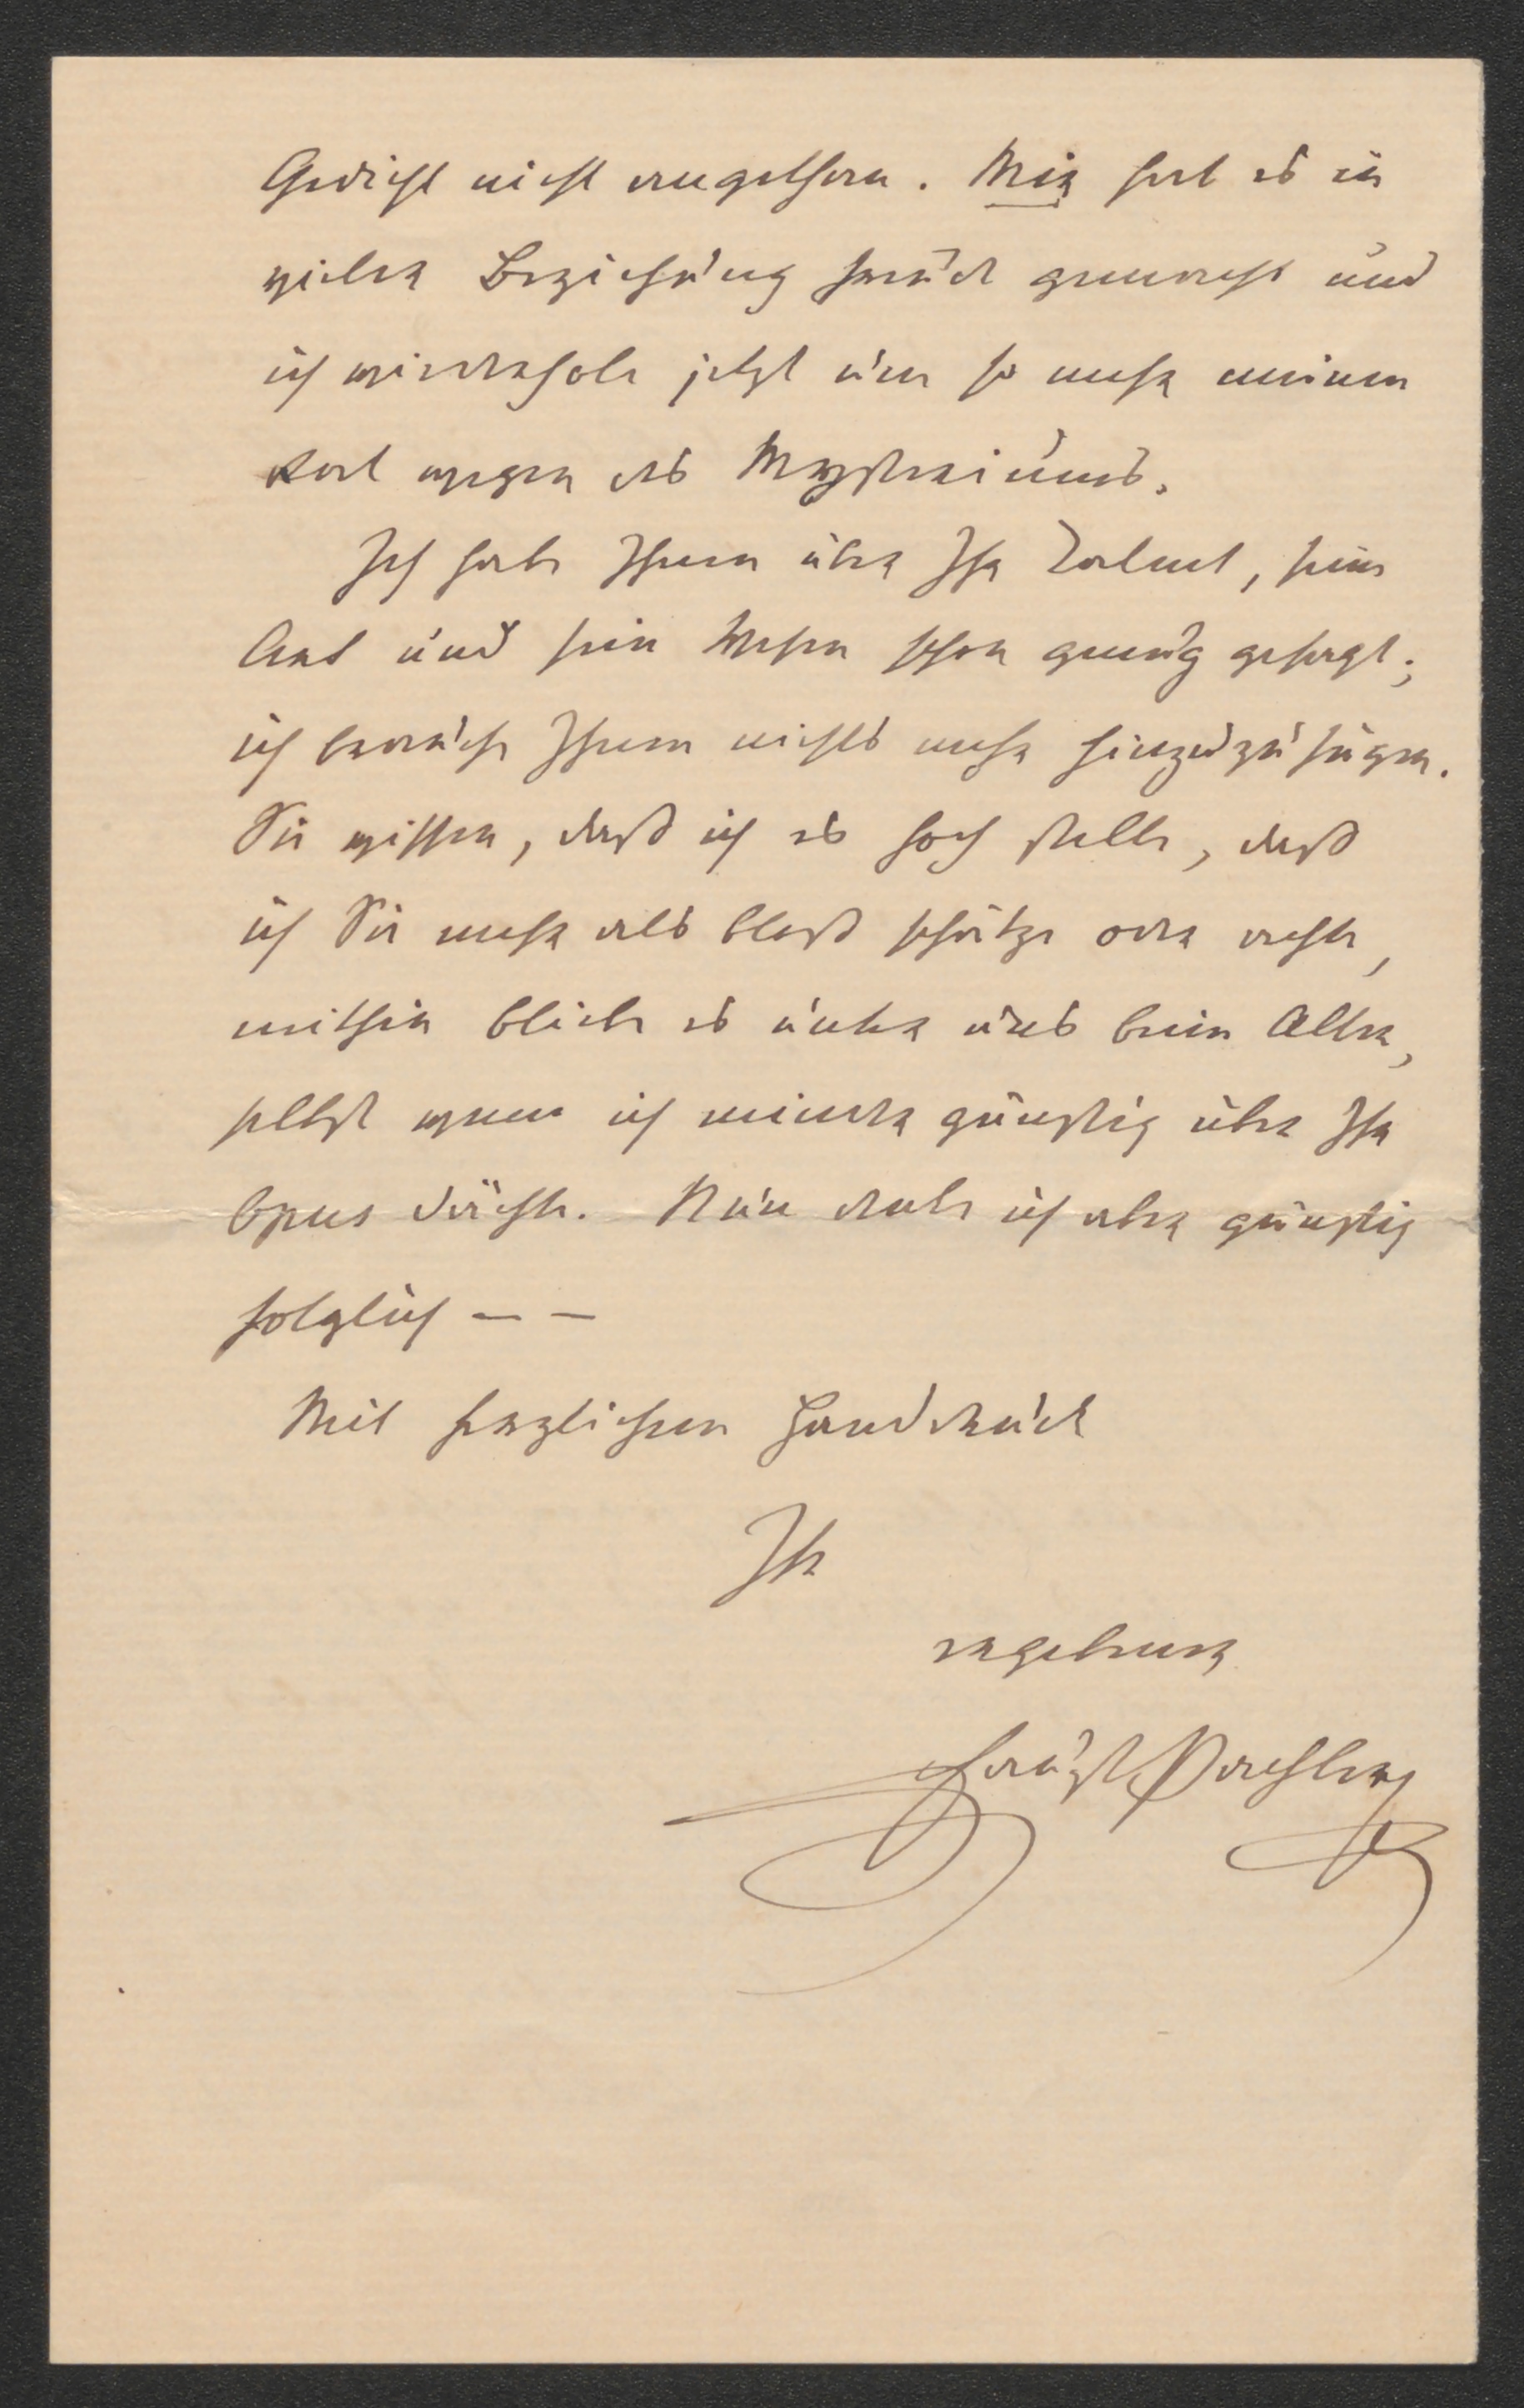 Gedicht nicht angethan. Mir hat es in
vieler Beziehung Freude gemacht und
ich wiederhole jetzt um so mehr meinen
Rat wegen des Mysteriums.
Ich habe Ihnen über Ihr Talent, seine
Art und sein Wesen schon genug gesagt;
ich brauche Ihnen nichts mehr hinzuzufügen.
Sie wissen, daß ich es hoch stelle, daß
ich Sie mehr als bloß schätze oder achte,
mithin bliebe es unter uns beim Alten,
selbst wenn ich minder günstig über Ihr
Opus dächte. Nun denke ich aber günstig
folglich – –
Mit herzlichem Handdruck
Ihr
ergebener
Faust Pachler